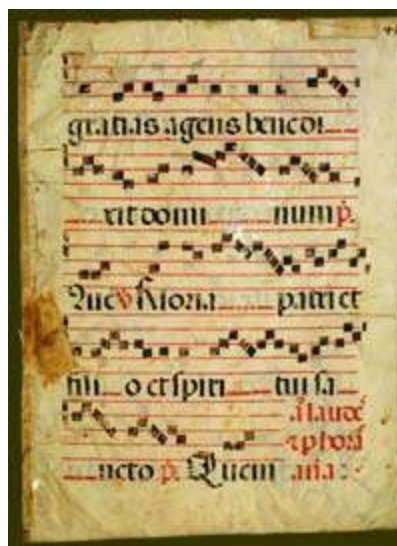 gratias agens benedi
xit domi num p.
Quē v Gloria patri et
fili o et spiri tui sa
a laude
ncto p. Quem ana :